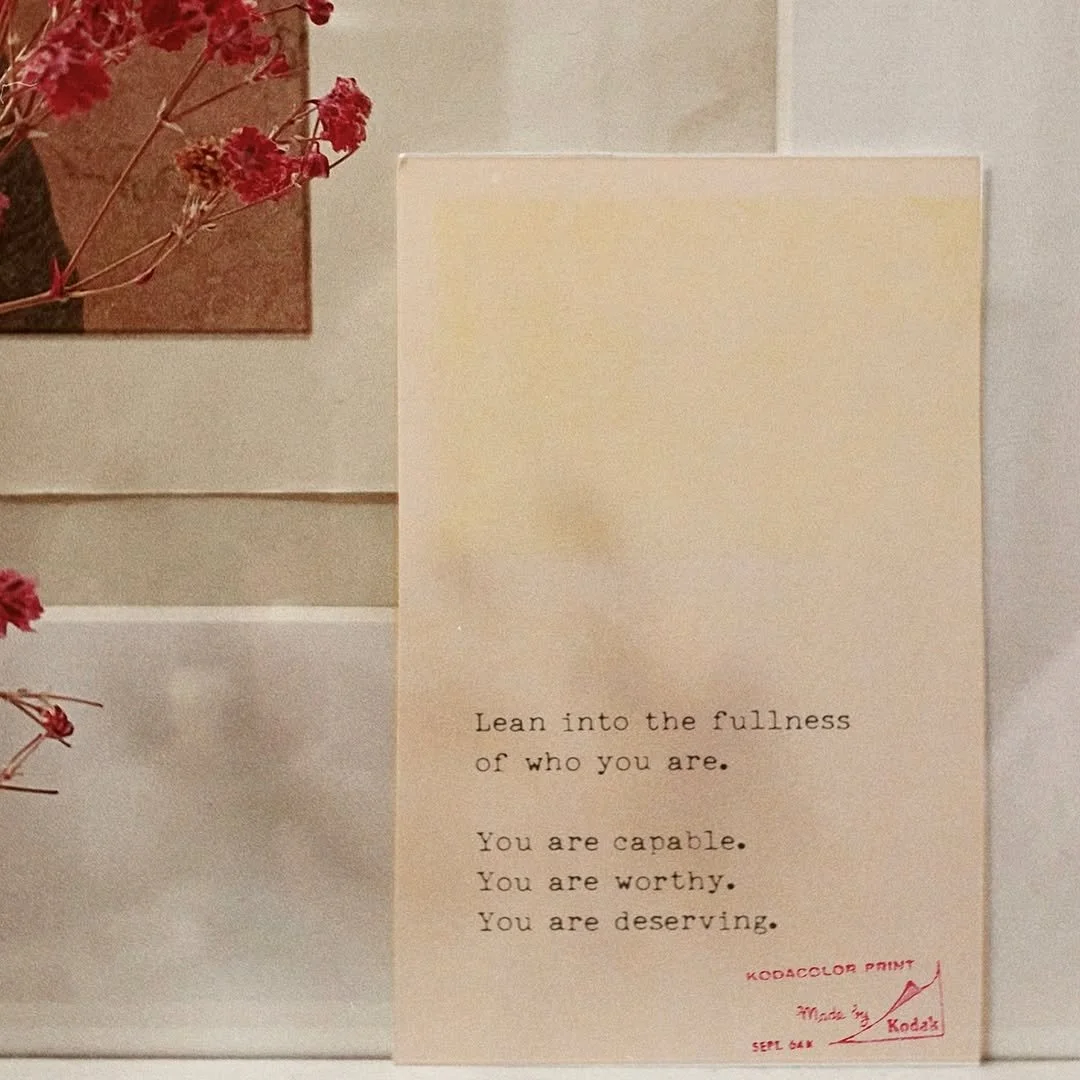 Lean into the fullness
of who you are.
You are capable.
You are worthy.
You are deserving.
KODACOLOR PRINT
Made by
Kodak
SEPT. 64K